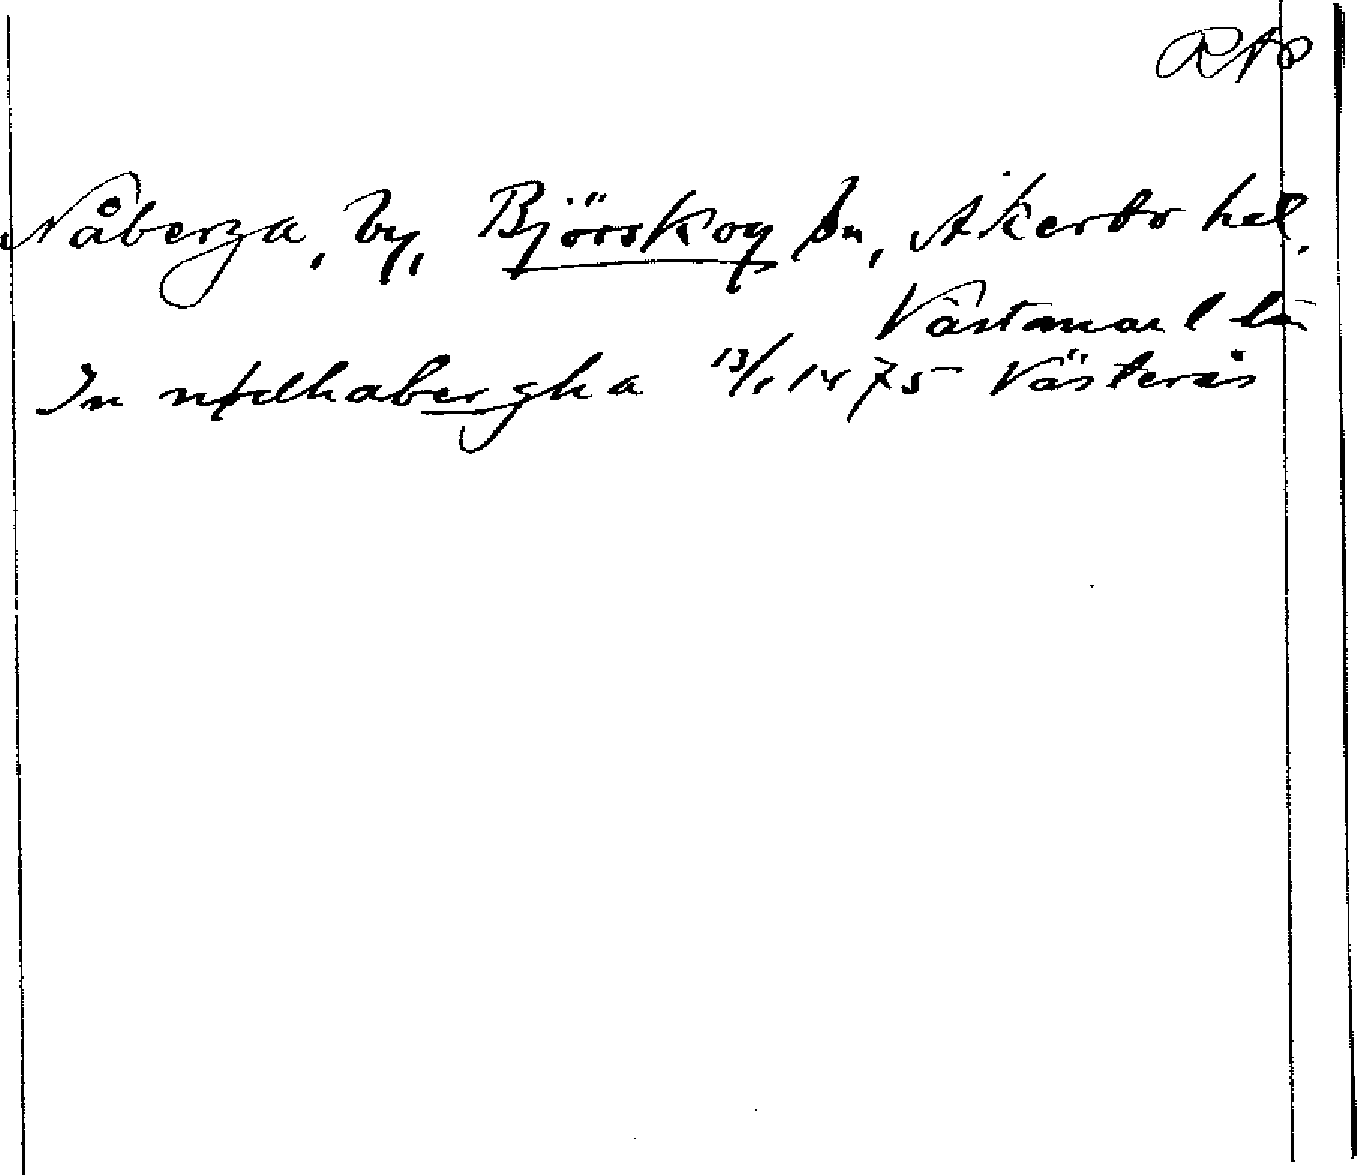 RAP
Nåberga, by, Björskog sn, Åkerbo hd.
Västmanl. län
In nødhabergha 13/1 1475 Västerås